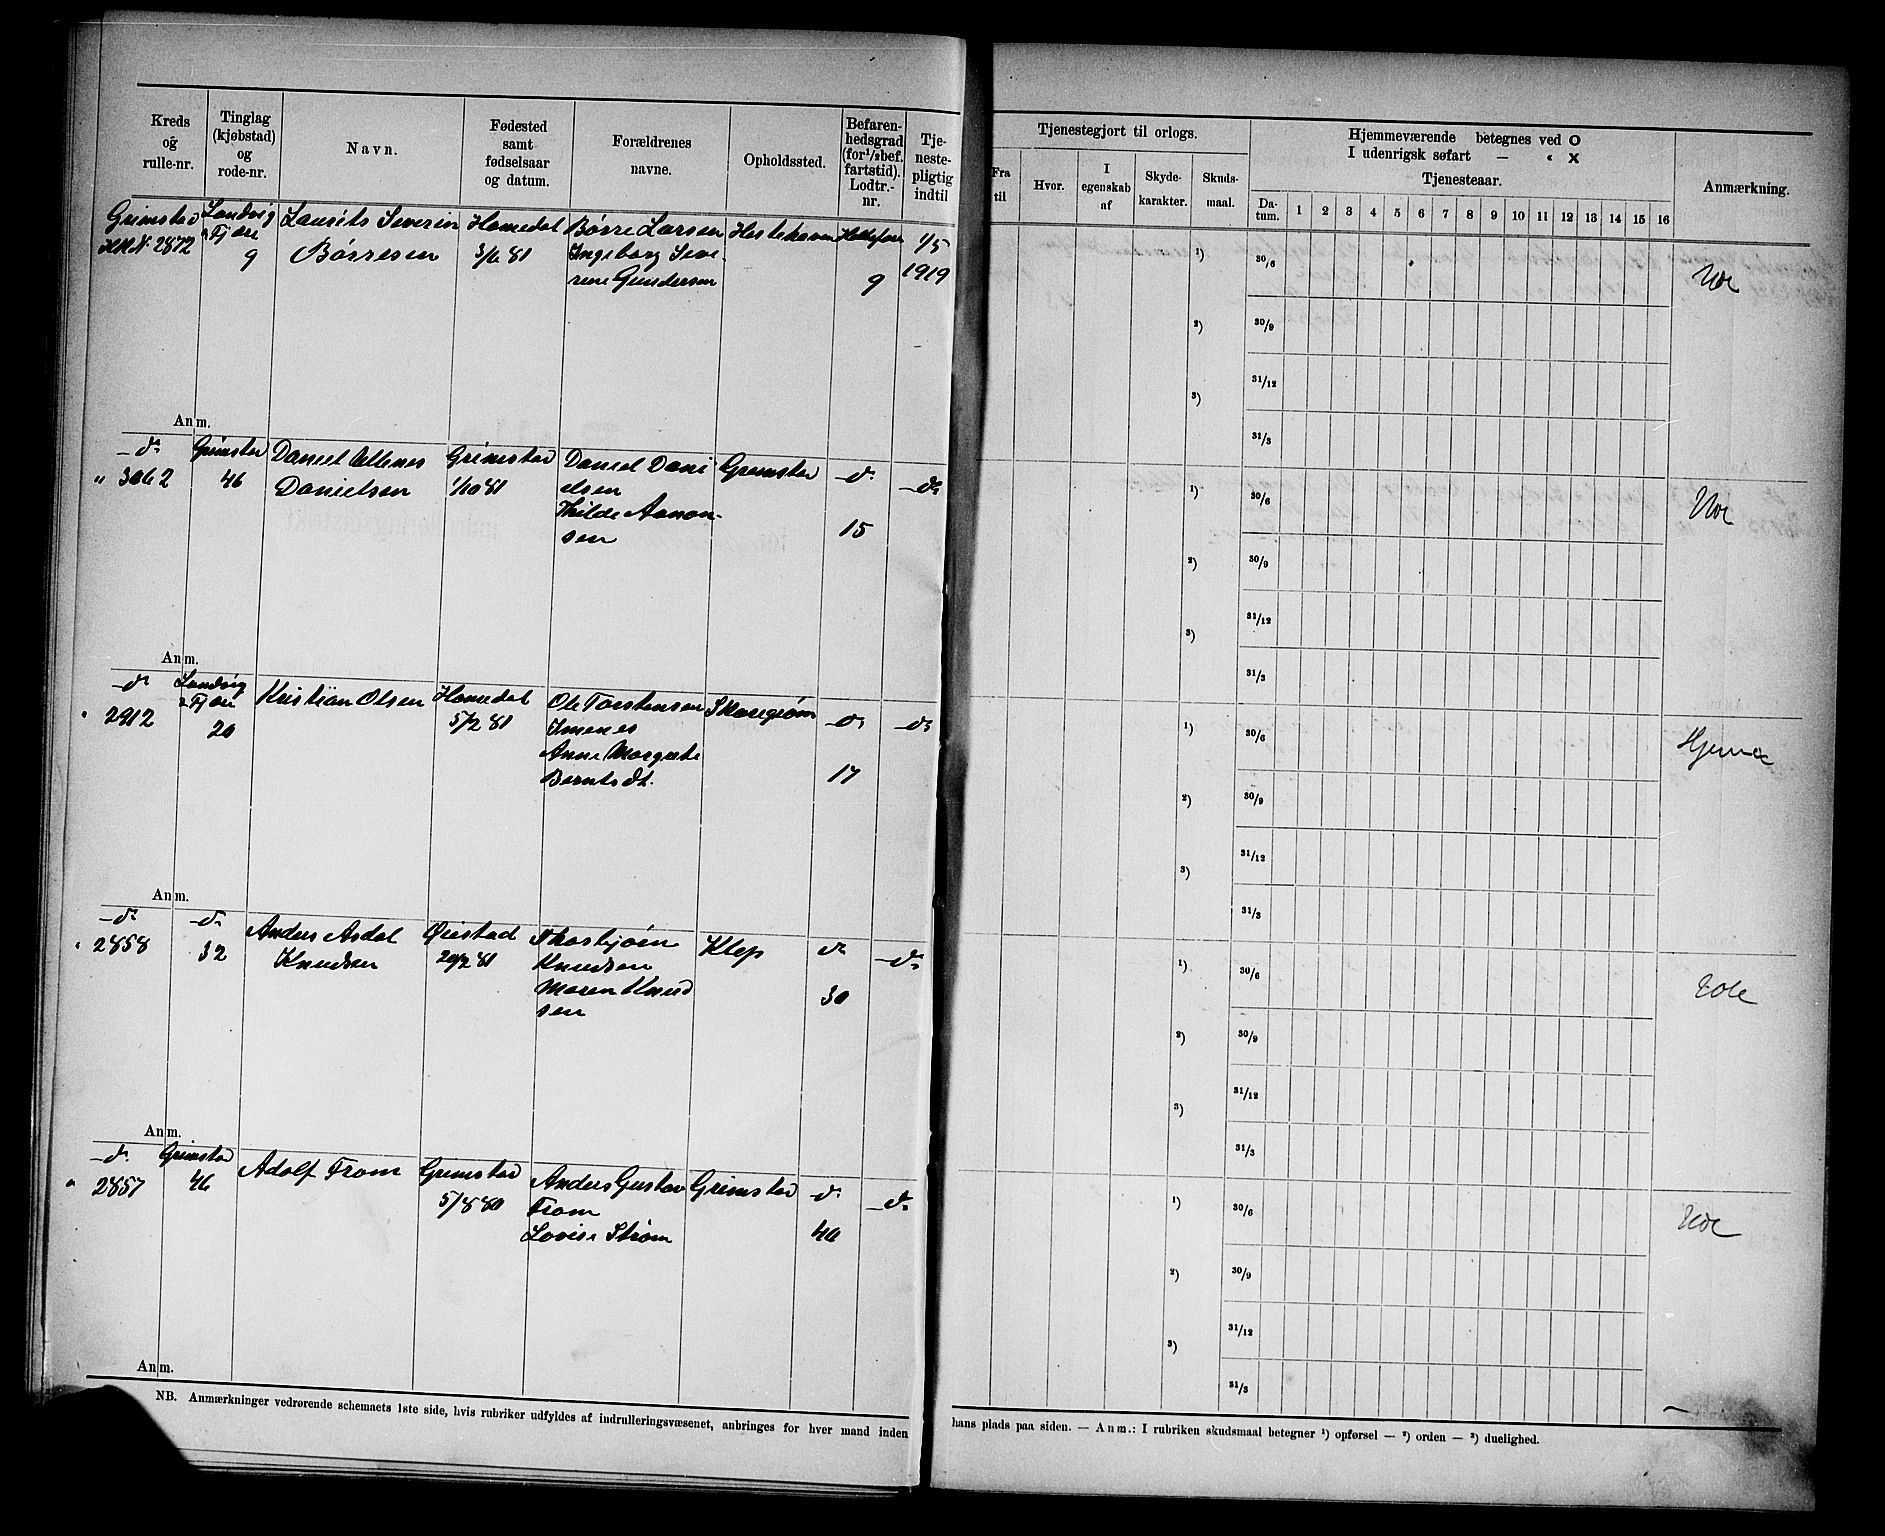 Kreds og rulle-nr.
Tinglag (kjøbstad) og rode-nr.
Navn.
Fødested samt fødselsaar og datum.
Forældrenes navne.
Opholdssted.
Befarenhedsgrad (for 1/2 bef. fartstid). Lodtr.-nr.
Tjenestepligtig indtil
Tjenestegjort til orlogs.
Fra til
Hvor.
I egenskab af
Skyde-karakter.
Skuds-maal.
Hjemmeværende betegnes ved O
I udenrigsk søfart — " X
Tjenesteaar.
Da-tum.
1 2 3 4 5 6 7 8 9 10 11 12 13 14 15 16
Anmærkning.
Grimstad
2872
Landvig
& Fjære
9
Laurits Severin
Børresen
Homedal
3/6 81
Børre Larsen
Ingeborg Seve-
rine Gundersen
9
1/5
1919
Ude
1)
2)
3)
30/6
30/9
31/12
31/3
Anm.
— d°
" 3062
Grimstad
46
Daniel
Danielsen
Grimstad
1/10 81
Daniel Dani
elsen
Thilde Aanon-
sen
Grimstad
— d°
15
— d°
Ude
1)
2)
3)
30/6
30/9
31/12
31/3
Anm.
— d°
" 2912
Landvig
& Fjære
20
Kristian Olsen
Homedal
5/2 81
Ole Torstensen
Imenes
Anne Margrete
Berntsdt.
— d°
17
— d°
Hjemme
1)
2)
3)
30/6
30/9
31/12
31/3
Anm.
— d°
" 2858
— d°
32
Anders Asdal
Knudsen
Øiestad
20/2 81
Thorbjørn
Knudsen
Maren Knud
sen
Klep
d°
30
— d°
Ude
1)
2)
3)
30/6
30/9
31/12
31/3
Anm.
— d°
" 2857
Grimstad
46
Adolf From
Grimstad
5/8 80
Anders Gustav
From
Lovise Strøm
Grimstad
— d°
40
— d°
Ude
1)
2)
3)
30/6
30/9
31/12
31/3
Anm.
NB. Anmærkninger vedrørende schemaets 1ste side, hvis rubriker udfyldes af indrulleringsvæsenet, anbringes for hver mand inden
hans plads paa siden. — Anm.: I rubriken skudsmaal betegner 1) opførsel — 2) orden — 3) duelighed.